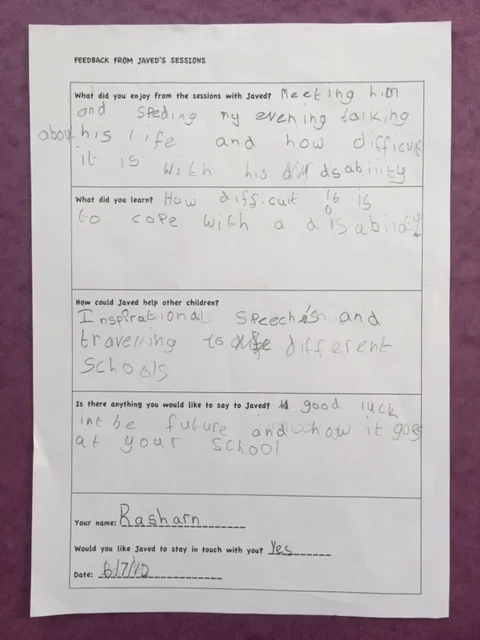 FEEDBACK FROM JAVED'S SESSIONS
What did you enjoy from the sessions with Javed? Meeting him
and speding my evening talking
about his life and how difficult
it is with his disability
What did you learn? How difficult it is
to cope with a disability
How could Javed help other children?
Inspirational speech's and
travelling to different
schools
Is there anything you would like to say to Javed? good luck
int be future and how it goes
at your school
Your name: Rasharn
Would you like Javed to stay in touch with you? Yes
Date: 6/7/12